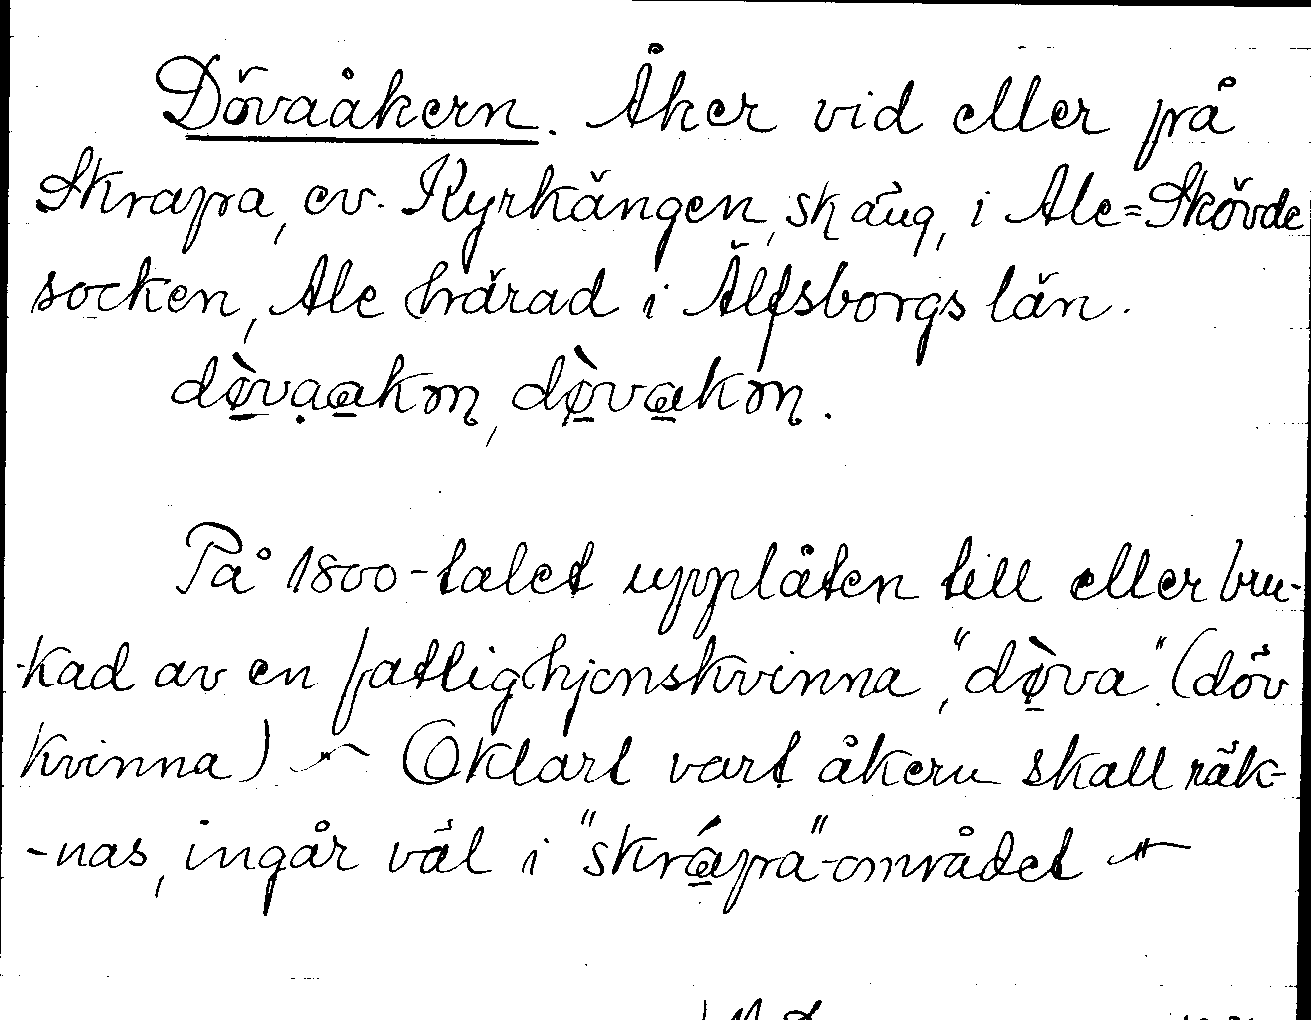 Dövaåkern. Åker vid eller på
Skrapa, ev. Kyrkängen, sk äng, i Ale=Skövde
socken, Ale härad i Älfsborgs län.
dø̀vaakɷn, dø̀vakɷn.
På 1800-talet upplåten till eller bru-
-kad av en fattighjonskvinna, "dø̀va". (döv
kvinna) Oklart vart åkern skall räk-
-nas, ingår väl i "skrápa"-området